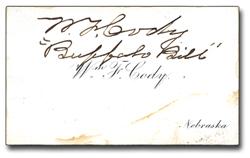 W. F. Cody
"Buffalo Bill"
Wm. F. Cody.
Nebraska